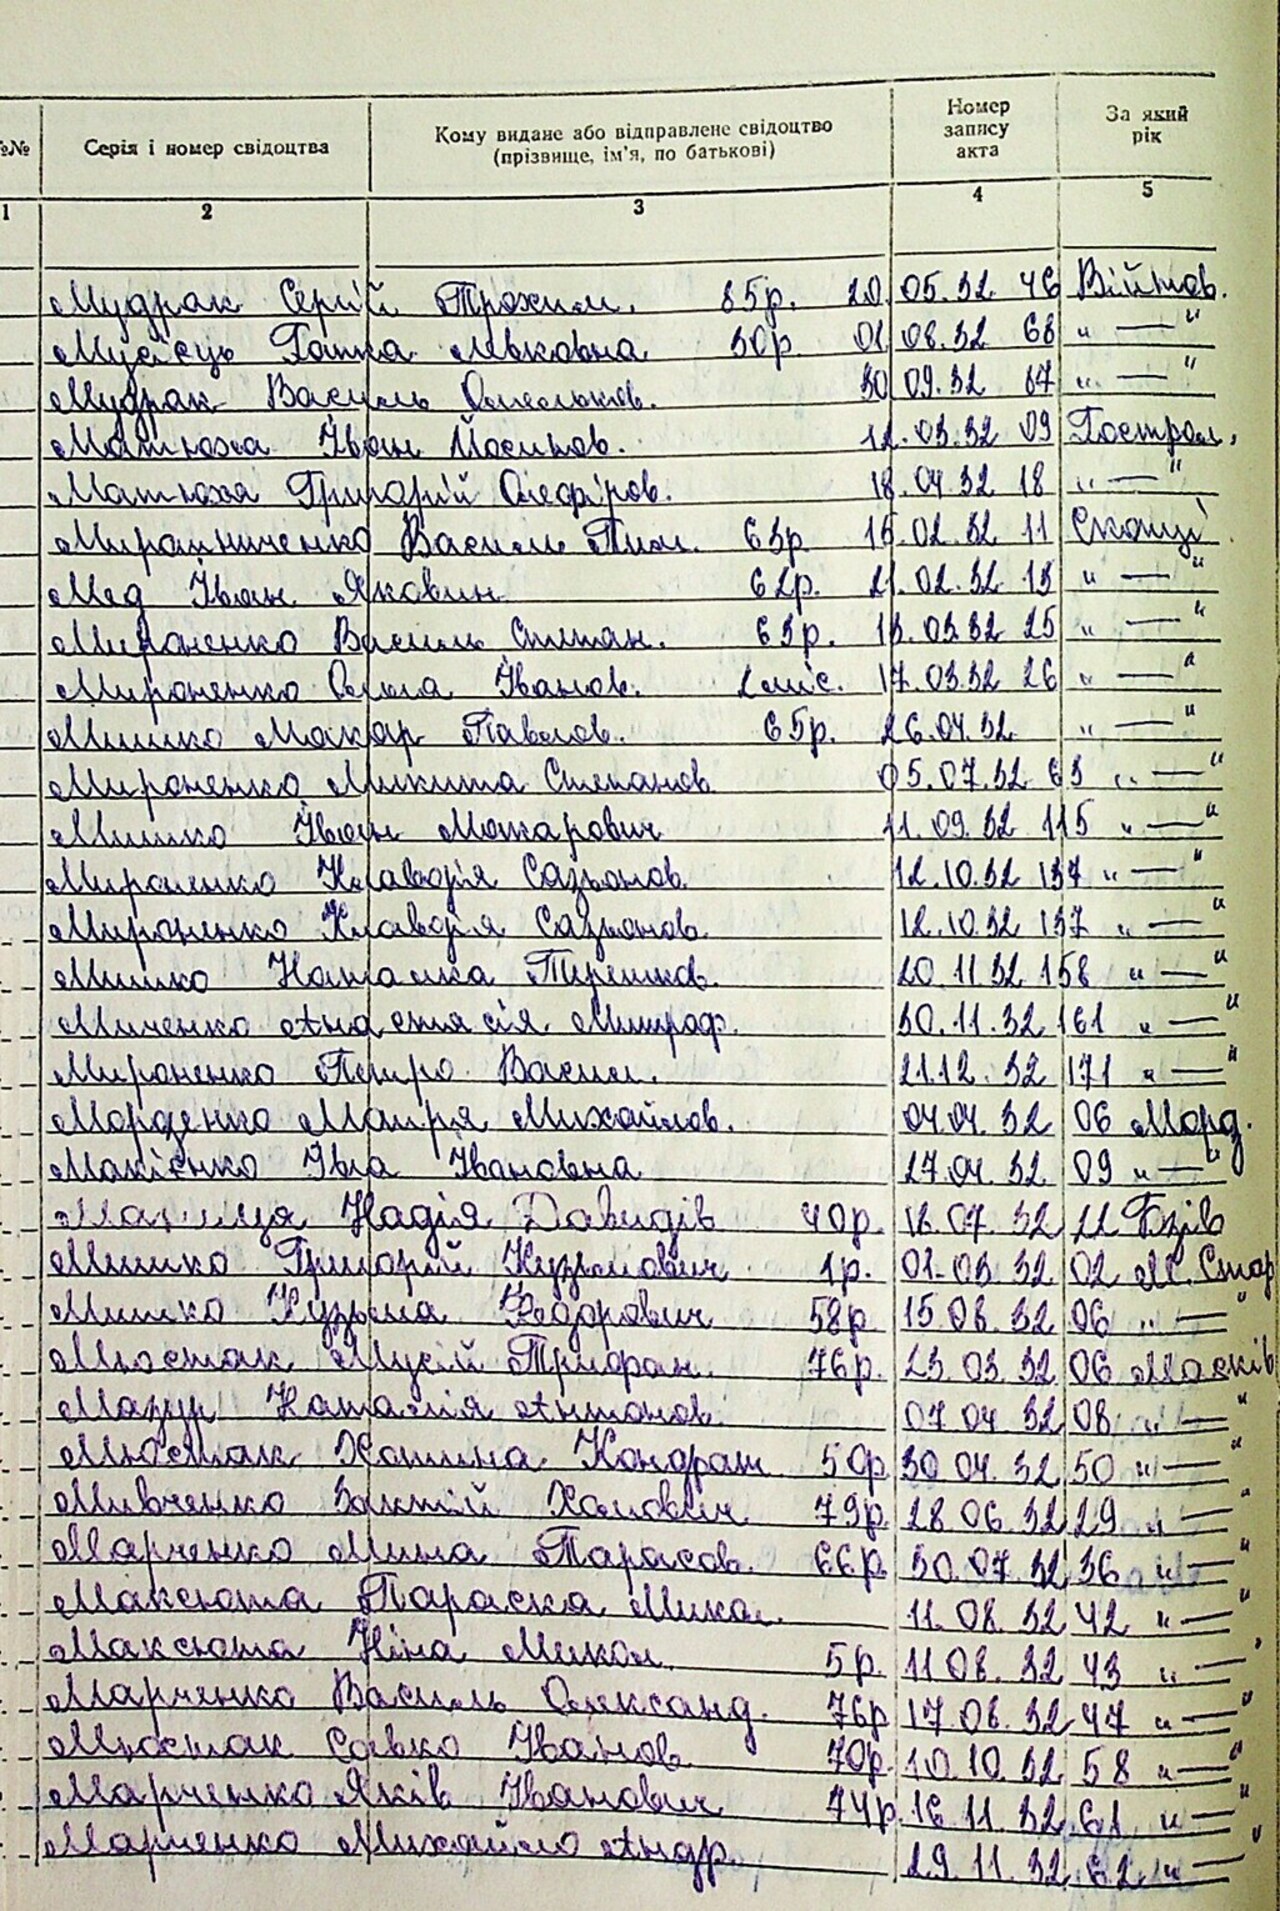 №№ Серія і номер свідоцтва Кому видане або відправлене свідоцтво (прізвище, ім'я, по батькові) Номер запису акта За який рік
1 2 3 4 5
Мудрак Сергій Трохим. 85р. 20.05.32 46 Війтов.
Мусієць Ганна Львовна 30р. 01.08.32 68 " — "
Мудрак Василь Омельков. 30 09.32 87 " — "
Матюха Іван Йосипов. 12.03.32 09 Гостром.
Матюха Григорій Олефіров. 18.04.32 18 " — "
Мирошниченко Василь Тим. 63р. 15.02.32 11 Скопці
Мед Іван Якович 62р. 21.02.32 13 " — "
Мироненко Василь Степан. 63р. 13.03.32 25 " — "
Мироненко Ольга Іванов. 2 міс. 17.03.32 26 " — "
Мишко Макар Павлов. 65р. 26.04.32 " — "
Мироненко Микита Степанов 05.07.32 63 " — "
Мишко Іван Макарович 11.09.32 115 " — "
Мироненко Клавдія Сазонов. 12.10.32 137 " — "
Мироненко Клавдія Сазонов. 12.10.32 137 " — "
Мишко Наталка Терешков. 20.11.32 158 " — "
Миченко Анастасія Митроф. 30.11.32 161 " — "
Мироненко Петро Васил. 21.12.32 171 " — "
Морденко Марія Михайлов. 04.04.32 06 Морд.
Макієнко Івга Івановна 27.04.32 09 " — "
Надія Давидів 40р. 18.07.32 22 Бзів
Мишко Григорій Кузьмович 1р. 01.03.32 02 М. Стар
Мишко Кузьма Федорович 58р. 15.08.32 06 " — "
Мостак Мусій Трифон. 76р. 23.03.32 06 Масків
Мазур Наталія Антонов. 07.04.32 08 " — "
Мостак Хотина Кондрат 50р. 30.04.32 50 " — "
Мивченко 79р. 28.06.32 29 " — "
Марченко Мина Тарасов. 66р. 30.07.32 36 " — "
Максюта Параска Микол. 11.08.32 42 " — "
Максюта Ніна Микол. 5р. 11.08.32 43 " — "
Марченко Василь Олександ. 76р 17.08.32 47 " — "
Мостак Савко Іванов. 70р. 10.10.32 58 " — "
Марченко Яків Іванович 74р. 16.11.32 61 " — "
Марченко Михайло Андр. 29.11.32 62 " — "